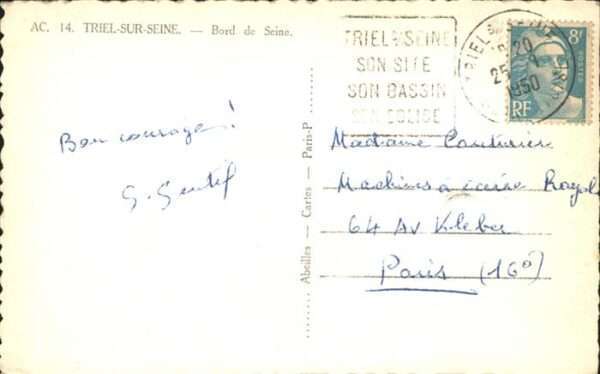 AC. 14. TRIEL-SUR-SEINE. — Bord de Seine.
TRIEL S/SEINE
SON SITE
SON BASSIN
SON EGLISE
TRIEL
20
25
1950
8F
POSTES
RF
Bon courage!
G. Gentif
Abeilles — Cartes — Paris-P
Madame Couturier
Machines à écrire Royal
64 Av Kleber
Paris (16°)